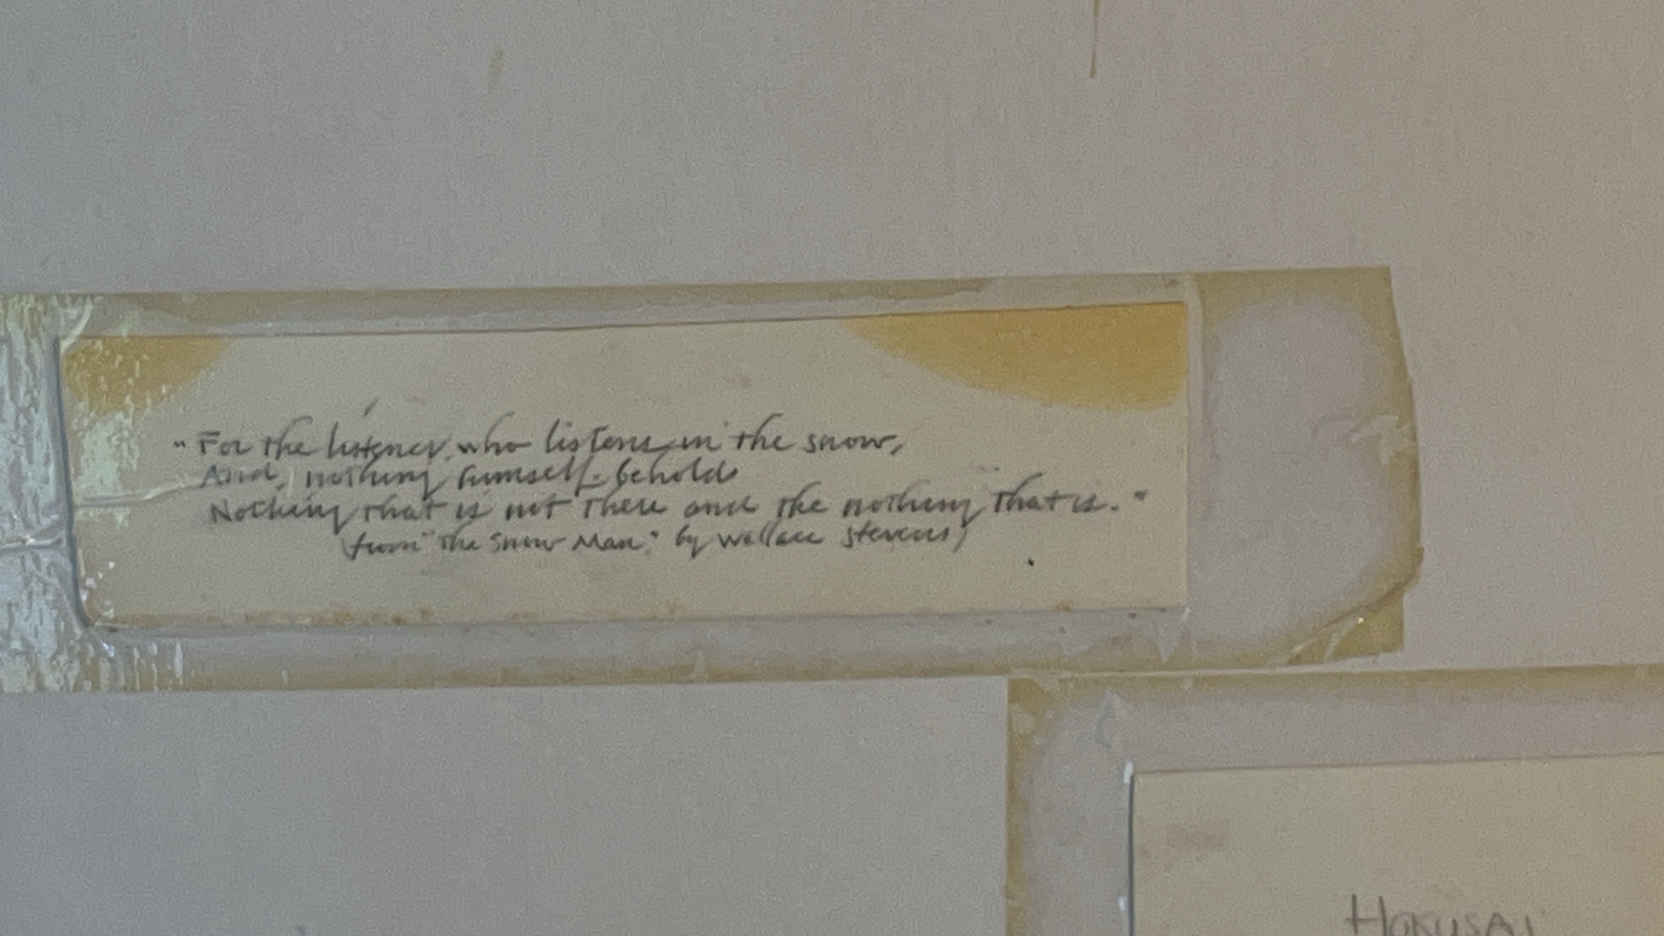 "For the listener, who listens in the snow,
And, nothing himself, beholds
Nothing that is not there and the nothing that is."
(from "The Snow Man," by Wallace Stevens)
HOKUSAI